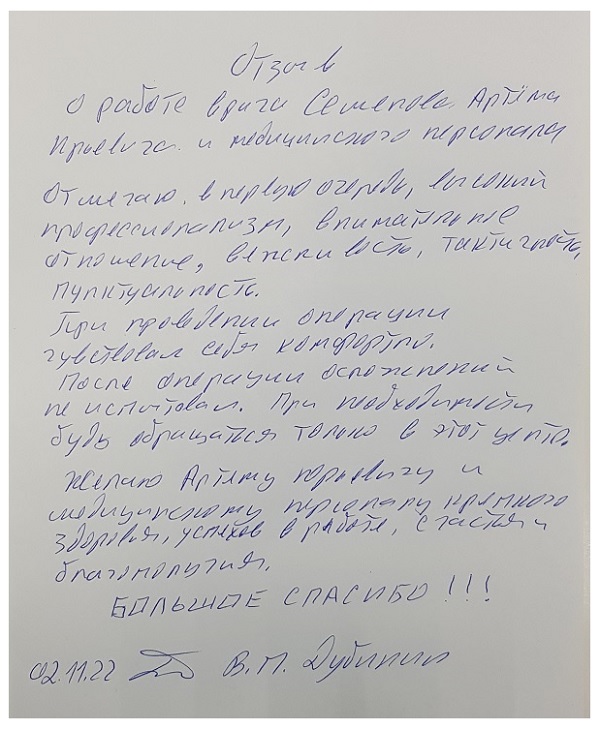 Отзыв
о работе врача Семенова Артёма
Юрьевича и медицинского персонала
Отмечаю в первую очередь, высокий
профессионализм, внимательное
отношение, вежливость, тактичность,
пунктуальность.
При проведении операции
чувствовал себя комфортно.
После операции осложнений
не испытовал. При необходимости
буду обращаться только в этот центр.
Желаю Артёму Юрьевичу и
медицинскому персоналу крепкого
здоровья, успехов в работе, счастья и
благополучия.
БОЛЬШОЕ СПАСИБО !!!
02.11.22 В.П. Дубинин